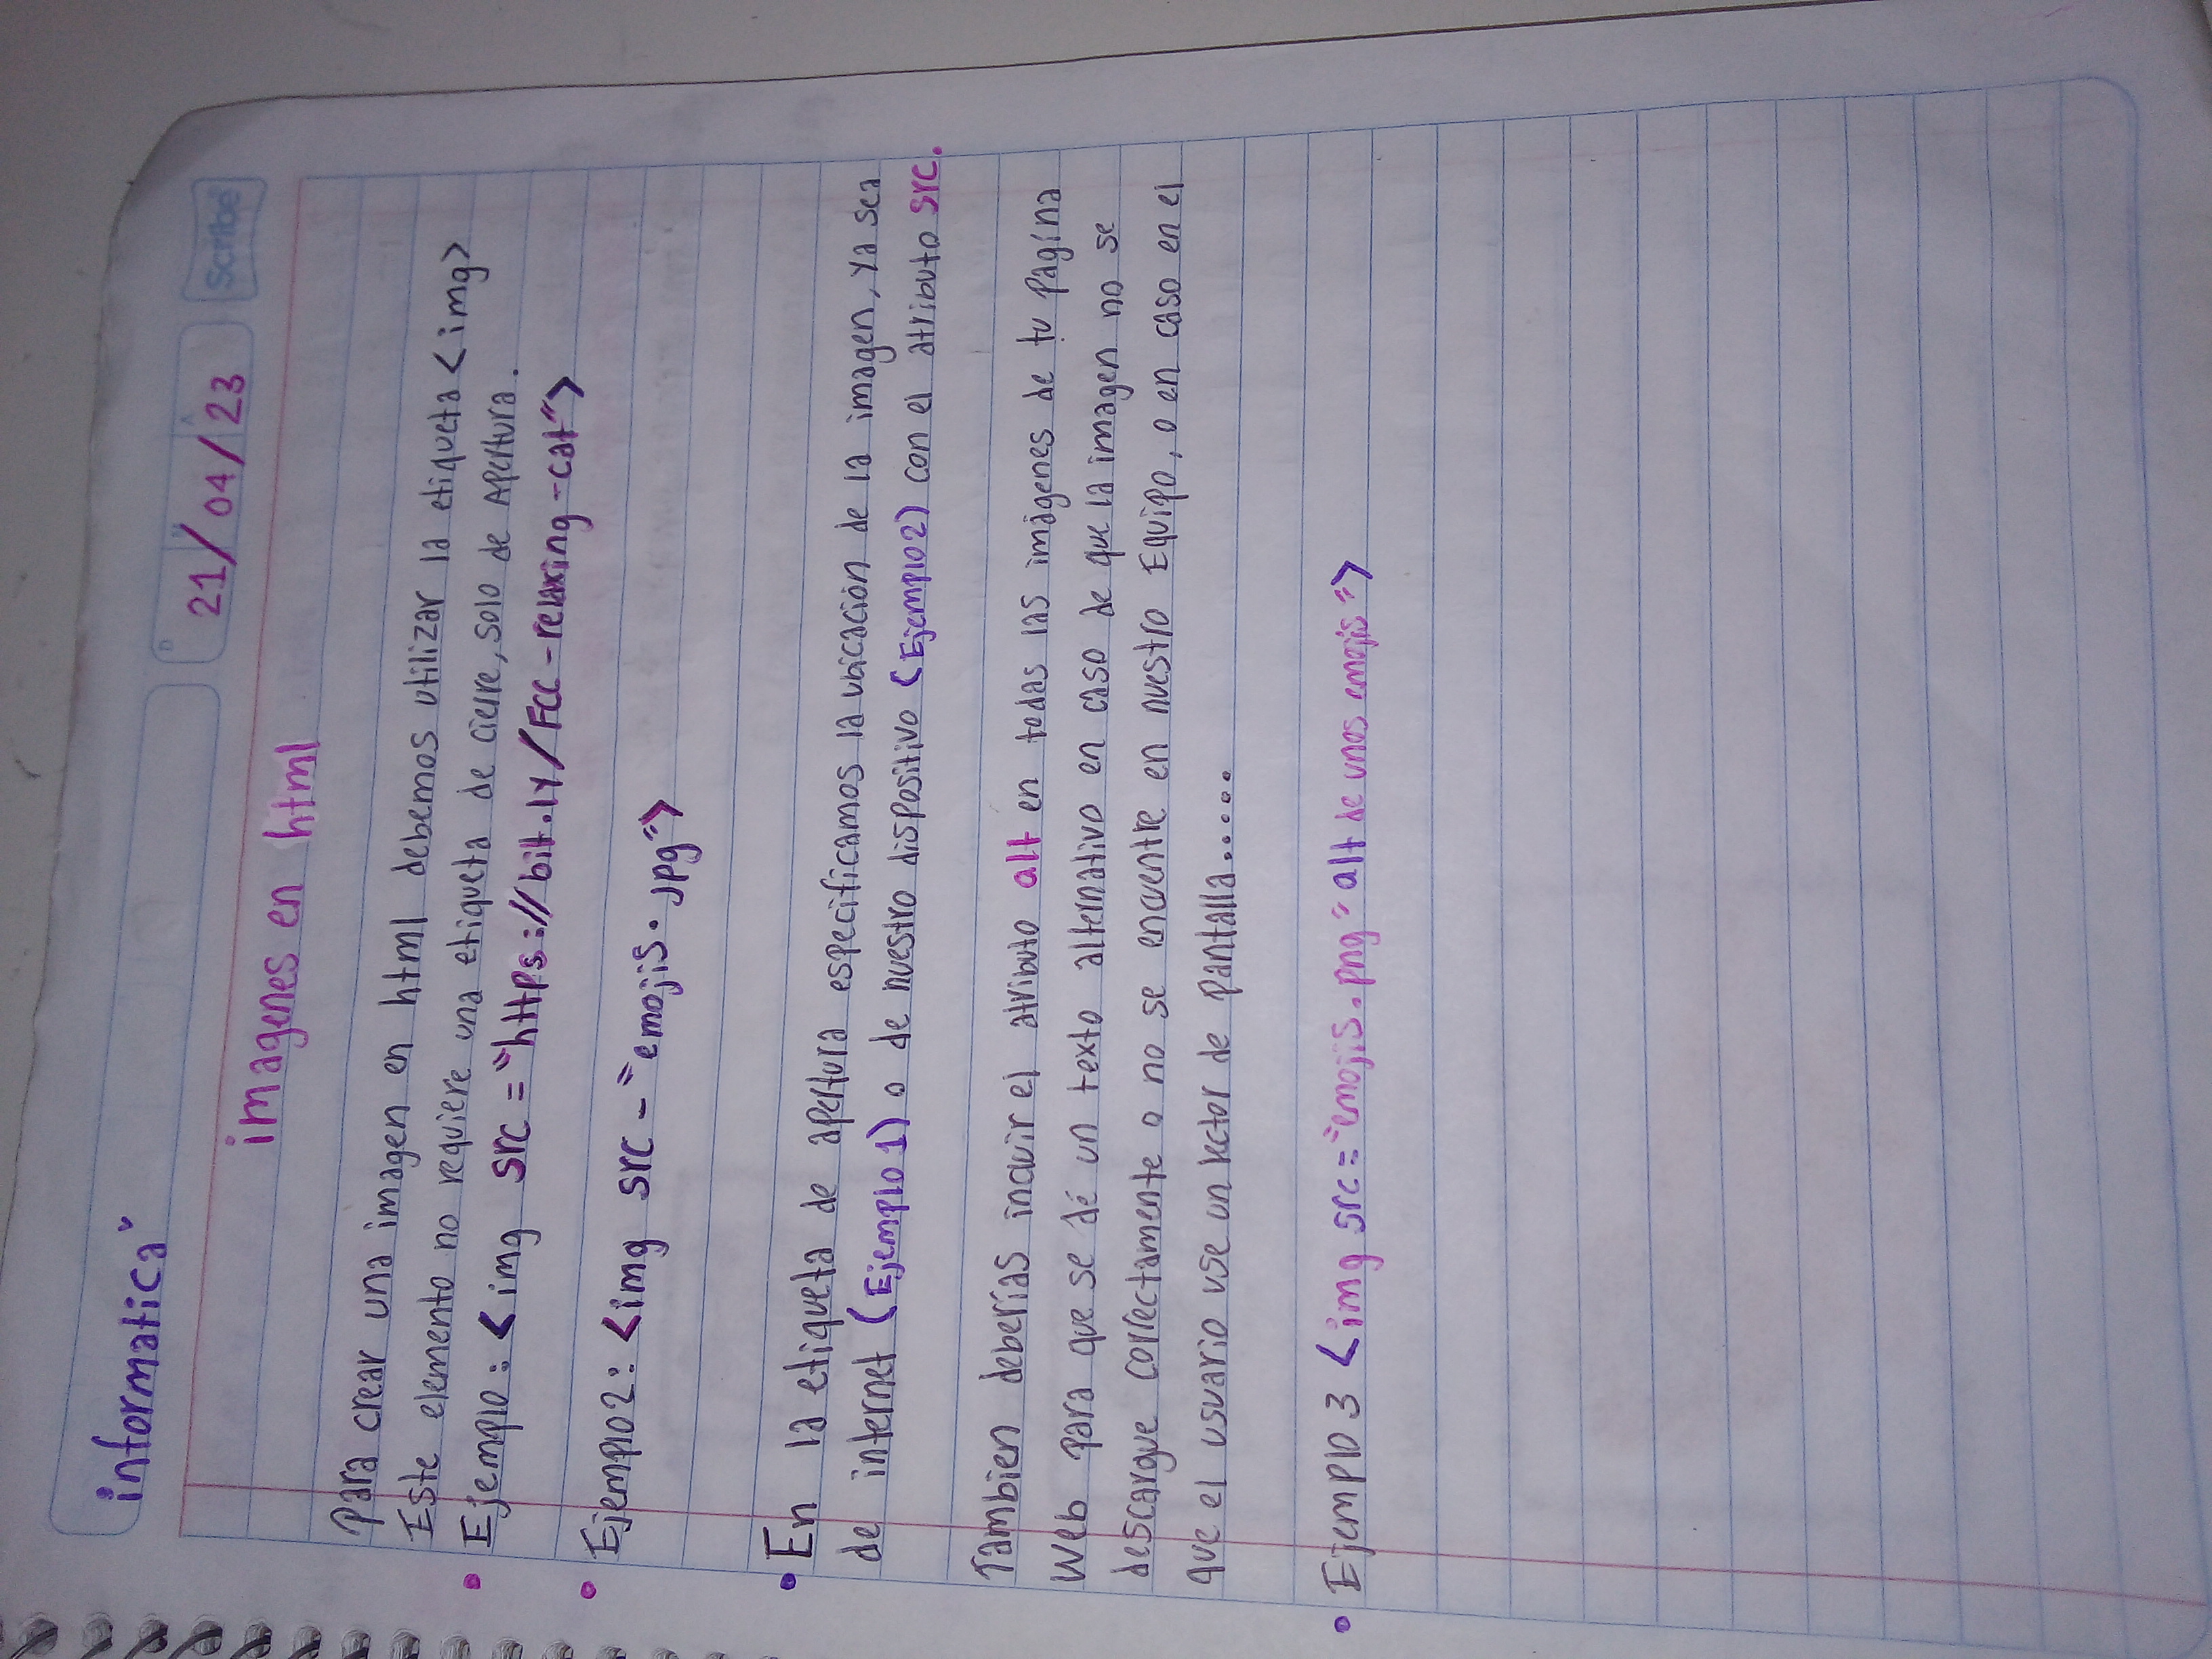 informatica
21/04/23
Scribe
imagenes en html
Para crear una imagen en html debemos utilizar la etiqueta <img>
Este elemento no requiere una etiqueta de cierre, solo de apertura.
Ejemplo: <img src="https://bit.ly/FCC-relaxing-cat">
Ejemplo2: <img src-"emojis.jpg">
En la etiqueta de apertura especificamos la ubicación de la imagen, ya sea
de internet (Ejemplo 1) o de nuestro dispositivo (Ejemplo2) con el atributo src.
Tambien deberías incluir el atributo alt en todas las imágenes de tu página
web para que se dé un texto alternativo en caso de que la imagen no se
descargue correctamente o no se encuentre en nuestro Equipo, o en caso en el
que el usuario use un lector de pantalla......
Ejemplo 3 <img src="emojis.png" alt de unos emojis">